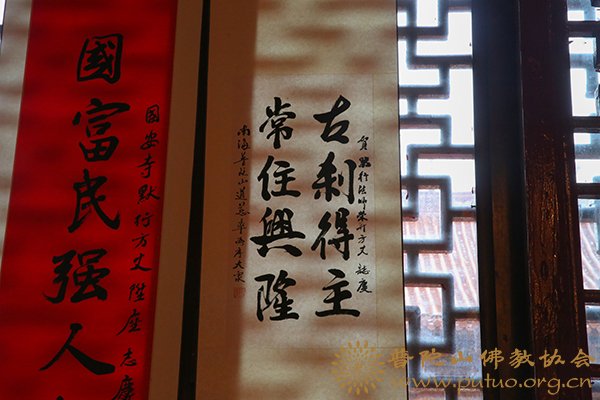 賀默行法师荣升方丈誌慶
古刹得主
常住興隆
南海普陀山道慈率两序大衆
國安寺默行方丈陞座志慶
國富民强人
普陀山佛教协会
www.putuo.org.cn